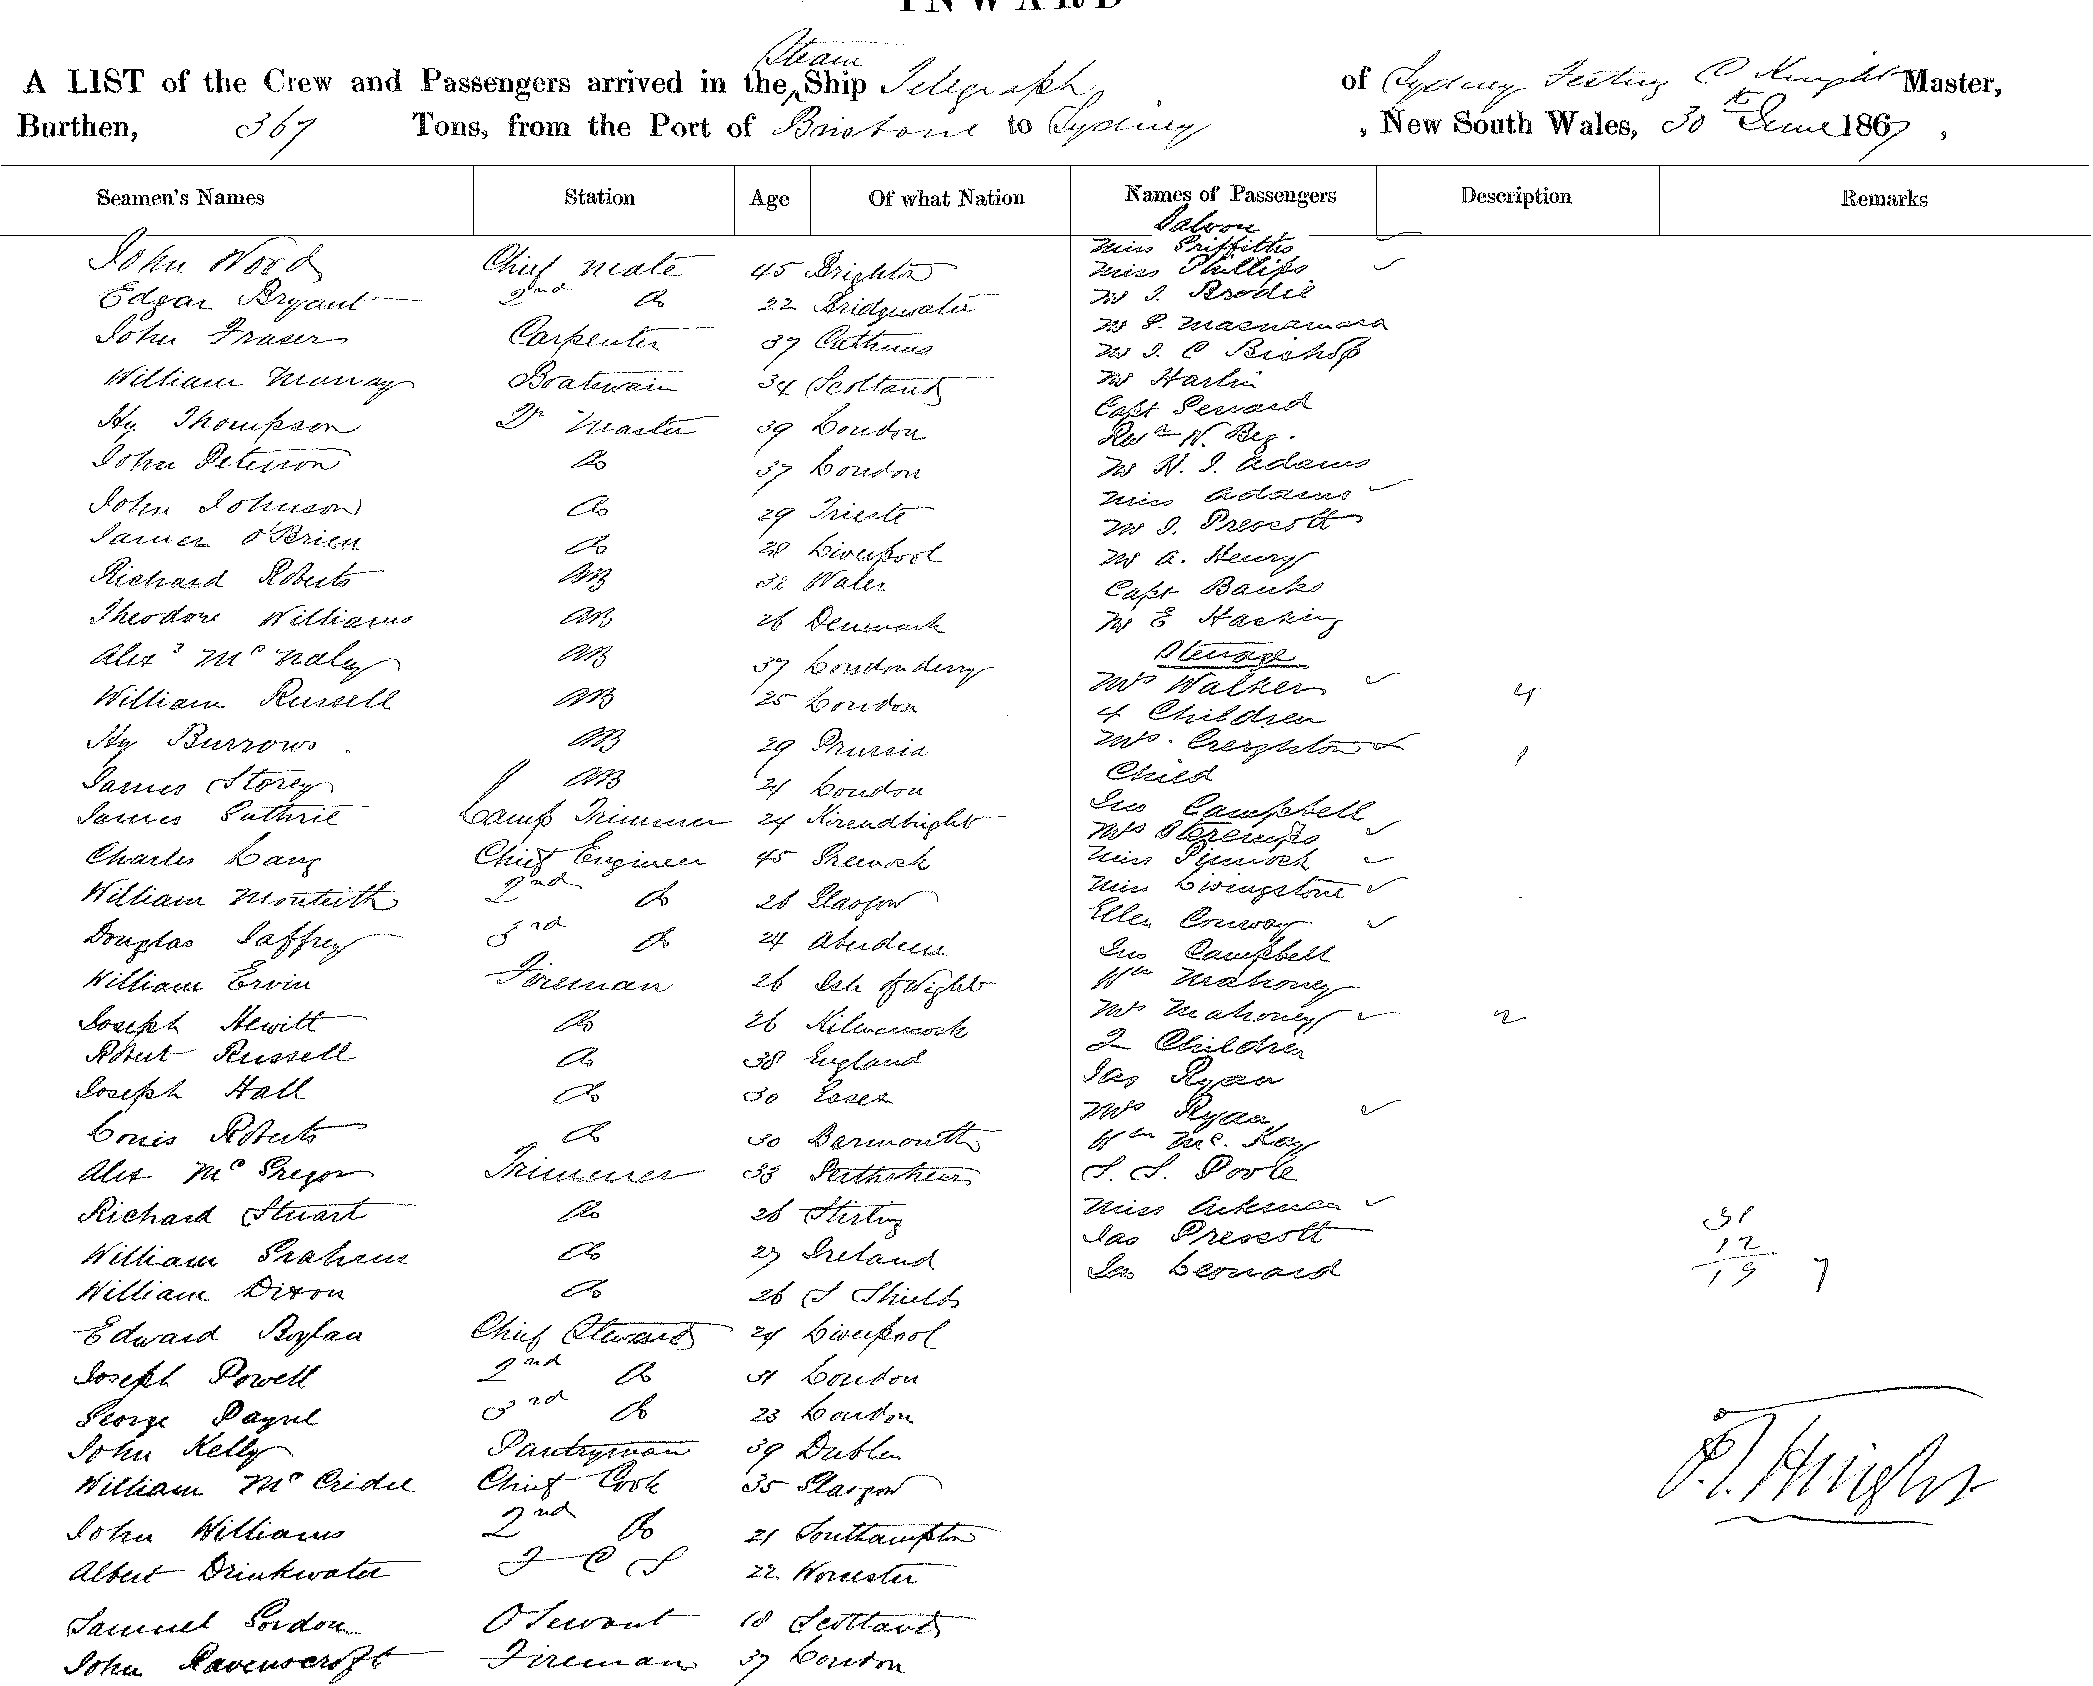 INWARD
Steam
A LIST of the Crew and Passengers arrived in the Ship Telegraph, of Sydney Testing C Knight Master,
Burthen, 367 Tons, from the Port of Brisbane to Sydney, New South Wales, 30th June 1867,
Seamen's Names Station Age Of what Nation Names of Passengers Description Remarks
Saloon
John Wood Chief Mate 45 Brighton Miss Griffiths
Miss Phillips
Edgar Bryant 2nd Do 22 Bridgwater Mr J. Brodie
John Fraser Carpenter 37 Cathness Mr P. Macnamara
Mr J. C Bishop
William Murray Boatswain 34 Scotland Mr Hartin
Capt Penard
Hy. Thompson Qr Master 39 London Revd W. Beg.
John Peterson Do 37 London Mr H. J. Adams
John Johnson Do 29 Trieste Miss Adams
Mr J. Prescott
James O'Brien Do 28 Liverpool Mr A. Henry
Richard Roberts AB 32 Wales Capt Banks
Theodore Williams AB 26 Denmark Mr E Hacking
Steerage
Alexr McNaley AB 37 Londonderry Mrs Walker
William Russell AB 25 London 4 Children 4
Hy Burrows AB 29 Prussia Mrs. Creighton
Child 1
James Storey AB 24 London Jno Campbell
James Guthrie Lamp Trimmer 24 Kircudbright Mrs
Charles Lang Chief Engineer 45 Greenock Miss Pymock
William Monteith 2nd Do 26 Glasgow Miss Livingstone
Ellen Conway
Douglas Jaffrey 3rd Do 24 Aberdeen Jno Campbell
William Ervin Fireman 26 Isle of Wight Wm Mahoney
Joseph Hewitt Do 26 Kilmarnock Mrs Mahoney 2
2 Children
Robert Russell Do 38 England Jas Ryan
Joseph Hall Do 30 Essex Mrs Ryan
Louis Roberts Do 30 Barmouth Wm Mc. Kay
Alex McGregor Trimmer 33 Perthshire S. S. Poole
Richard Stuart Do 26 Stirling Miss Aikman
Jas Prescott 31
William Graham Do 27 Ireland Jas Leonard 12
William Dixon Do 26 S Shields 19 7
Edward Boylan Chief Steward 24 Liverpool
Joseph Powell 2nd Do 31 London
George Payne 3rd Do 23 London
John Kelly Pantryman 39 Dublin
William McCridie Chief Cook 35 Glasgow
John Williams 2nd Do 21 Southampton
Albert Drinkwater F C S 22 Worcester
Samuel Gordon O Servant 18 Scotland
John Ravenscroft Fireman 37 London